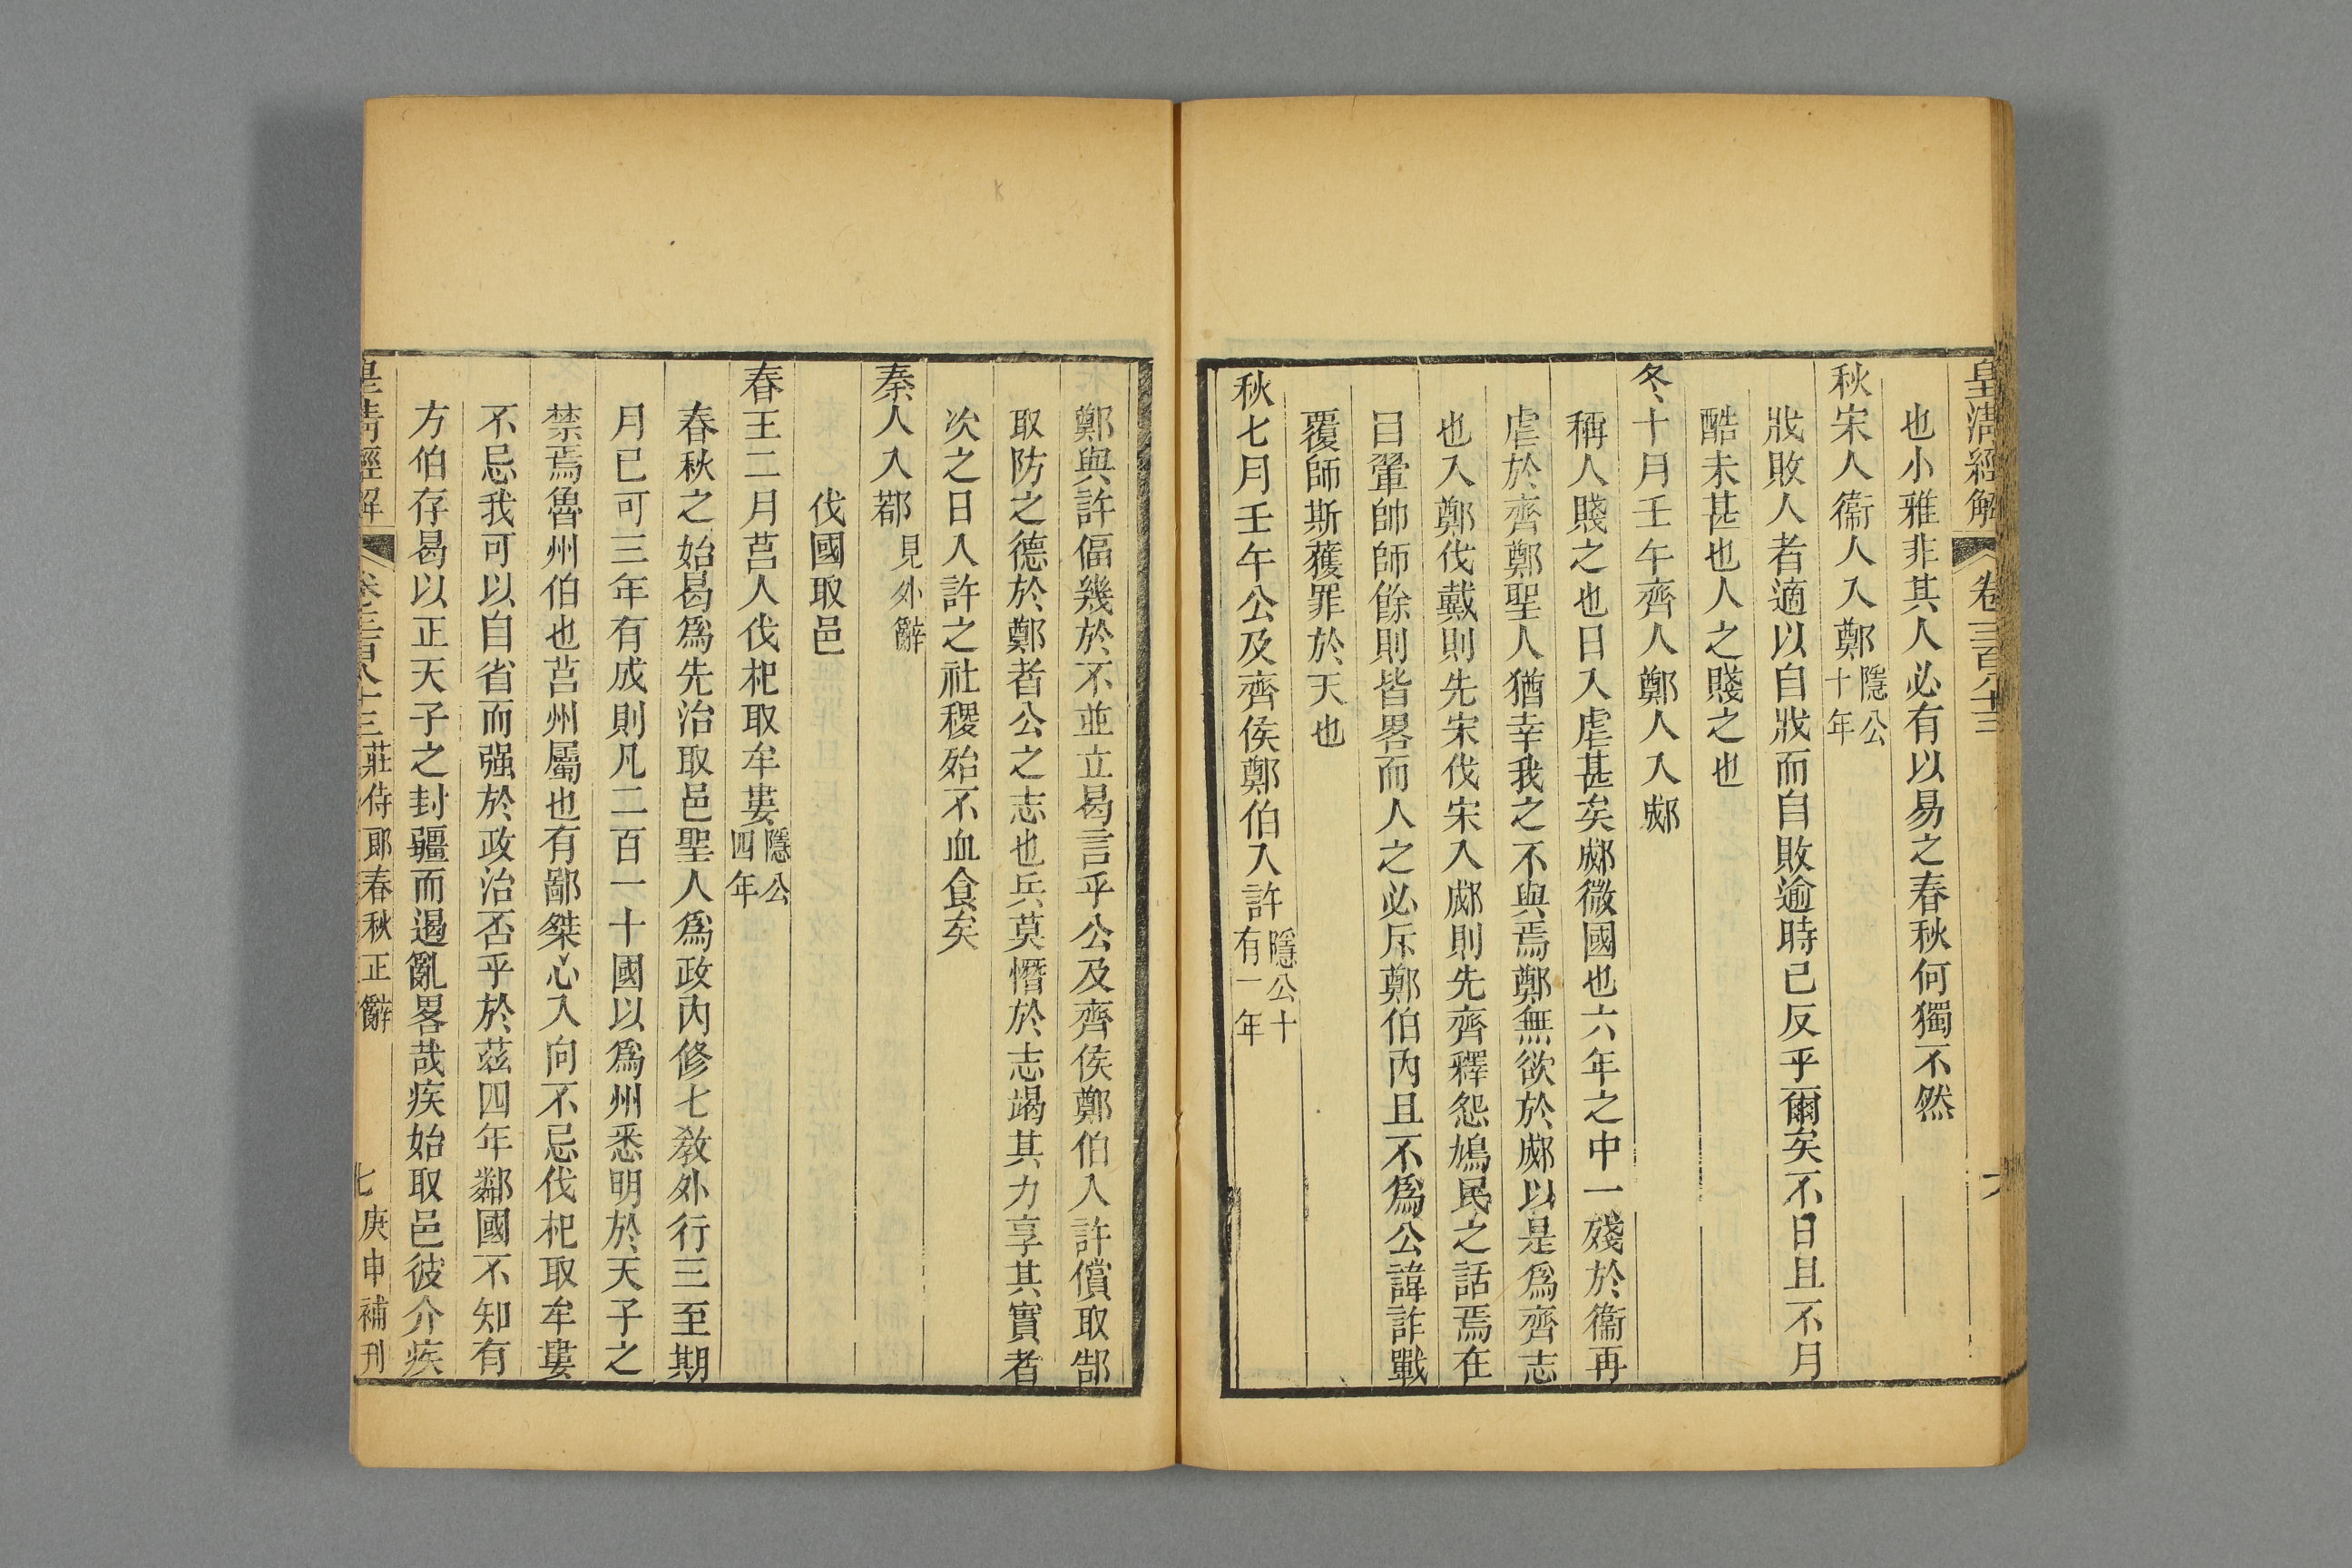 皇清經解 卷三百八十三 六
也小雅非其人必有以易之春秋何獨不然
秋宋人衞人入鄭隱公十年
戕敗人者適以自戕而自敗逾時已反乎爾矣不日且不月
酷未甚也人之賤之也
冬十月壬午齊人鄭人入郕
稱人賤之也日入虐甚矣郕微國也六年之中一殘於衞再
虐於齊鄭聖人猶幸我之不與焉鄭無欲於郕以是爲齊志
也入鄭伐戴則先宋伐宋入郕則先齊釋怨鳩民之話焉在
目翬帥師餘則皆畧而人之必斥鄭伯內且不爲公諱詐戰
覆師斯獲罪於天也
秋七月壬午公及齊侯鄭伯入許隱公十有一年
鄭與許偪幾於不並立曷言乎公及齊侯鄭伯入許償取郜
取防之德於鄭者公之志也兵莫憯於志竭其力享其實者
次之日入許之社稷殆不血食矣
秦人入鄀見外辭
伐國取邑
春王二月莒人伐杞取牟婁隱公四年
春秋之始曷爲先治取邑聖人爲政內修七敎外行三至期
月已可三年有成則凡二百一十國以爲州悉明於天子之
禁焉魯州伯也莒州屬也有鄙桀心入向不忌伐杞取牟婁
不忌我可以自省而强於政治否乎於茲四年鄰國不知有
方伯存曷以正天子之封疆而遏亂畧哉疾始取邑彼介疾
皇清經解 卷三百八十三 莊侍郞春秋正辭 七 庚申補刊